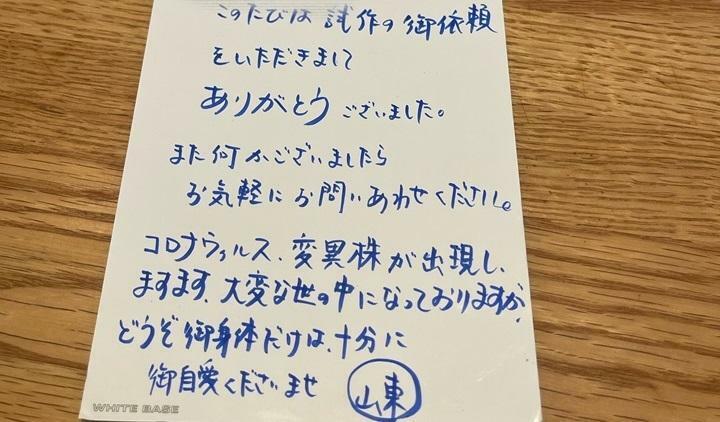 このたびは 試作の御依頼
をいただきまして
ありがとうございました。
また何かございましたら
お気軽にお問いあわせください。
コロナウィルス、変異株が出現し、
ますます、大変な世の中になっておりますが、
どうぞ御身体だけは、十分に
御自愛くださいませ
山東
WHITE BASE